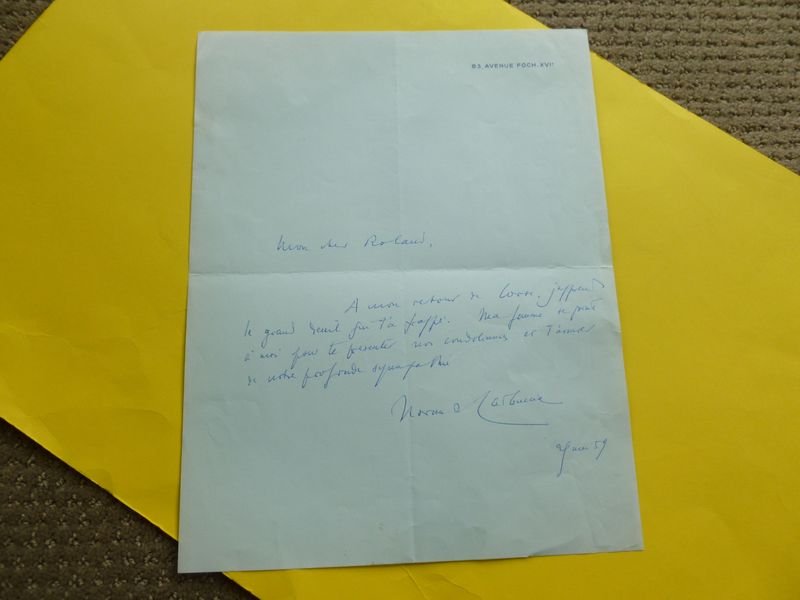 83 AVENUE FOCH. XVIe
Mon cher Roland,
A mon retour de Corse, j'apprends
le grand deuil qui t'a frappé. Ma femme se joint
à moi pour te présenter nos condoléances et t'assurer
de notre profonde sympathie
mai 59